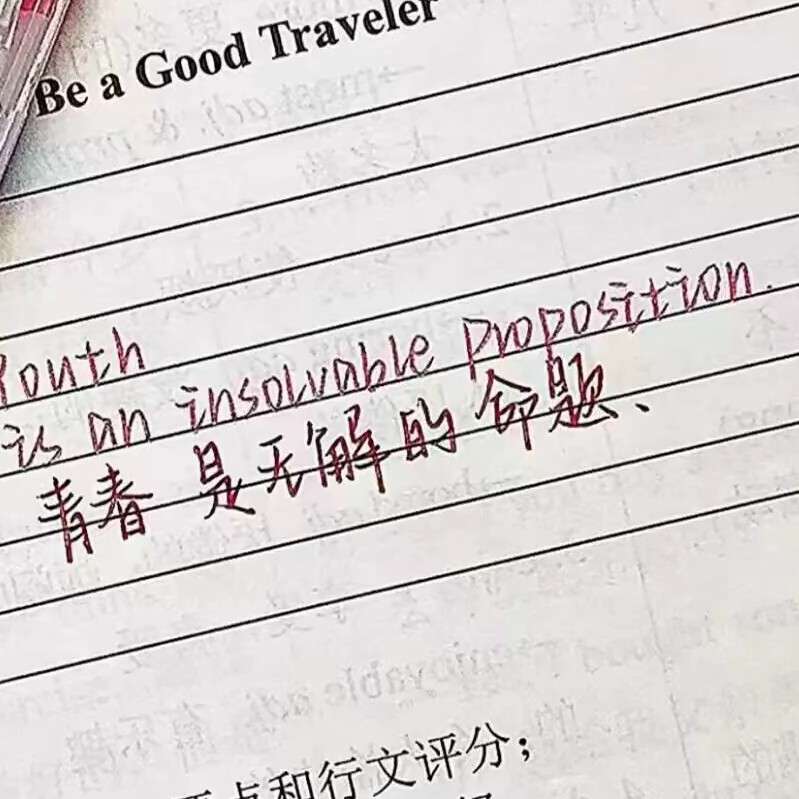 Be a Good Traveler
Youth
is an insolvable proposition.
青春是无解的命题、
点和行文评分；